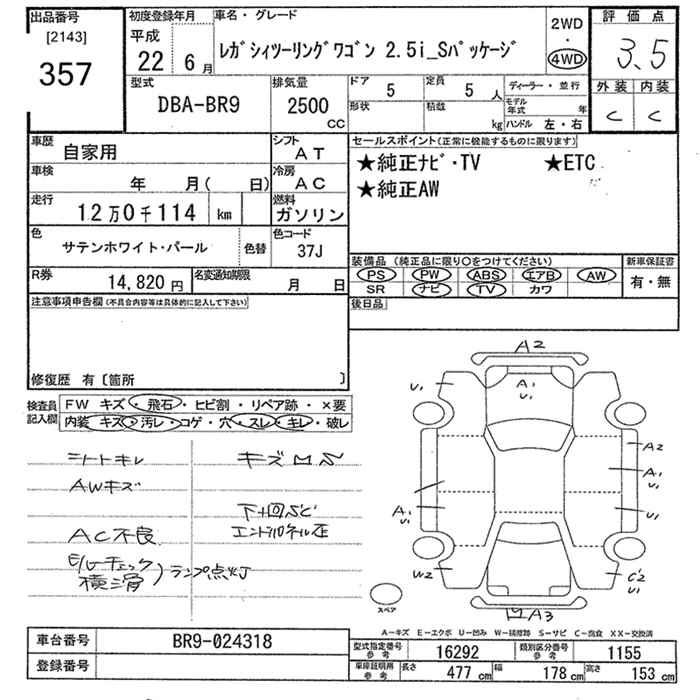 出品番号
[2143]
357
初度登録年月
平成
22年 6月
車名・グレード
レガシィツーリングワゴン 2.5i_Sパッケージ
2WD
・
4WD
評価点
3.5
外装 内装
C C
型式
DBA-BR9
排気量
2500
CC
ドア 5
定員 5人
形状
積載 kg
ディーラー・並行
モデル年式 年
ハンドル 左・右
車歴
自家用
シフト
AT
車検
年 月( 日)
冷房
AC
走行
12万0千114 km
燃料
ガソリン
色
サテンホワイト・パール
色替
色コード
37J
R券
14,820円
名変通知期限
月 日
セールスポイント(正常に機能するものに限ります)
★純正ナビ・TV ★ETC
★純正AW
装備品 (純正品に限り○をつけてください)
PS PW ABS エアB AW
SR ナビ TV カワ
新車保証書
有・無
後日品
注意事項申告欄(不具合内容等は具体的に記入して下さい)
修復歴 有〔箇所 〕
検査員記入欄
FW キズ・飛石・ヒビ割・リペア跡・×要
内装 キズ・汚レ・コゲ・穴・スレ・キレ・破レ
シートキレ
AWキズ
AC不良
E/Gチェック
横滑
)ランプ点灯
キズ凹S
下回サビ
エンドパネル歪
A2
U1
A1
U1
A2
A1
U1
A1
U1
U1
W2
C2
U1
A3
スペア
A-キズ E-エクボ U-凹み W-補修跡 S-サビ C-腐食 XX-交換済
車台番号
BR9-024318
登録番号
型式指定番号
参考
16292
類別区分番号
参考
1155
車庫証明用
参考
長さ 477 cm
幅 178 cm
高さ 153 cm